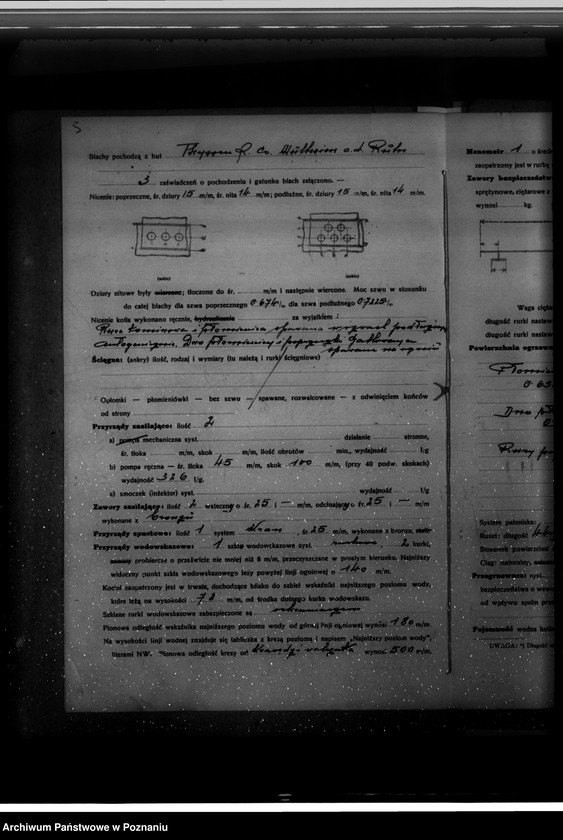 5
Blachy pochodzą z hut Thyssen & Co. Mülheim a.d. Ruhr
3 zaświadczeń o pochodzeniu i gatunku blach załączono. —
Nicenie: poprzeczne, śr. dziury 15 m/m, śr. nita 14 m/m; podłużne, śr. dziury 15 m/m, śr. nita 14 m/m.
(szkic) (szkic)
Dziury nitowe były wiercone; tłoczone do śr. m/m i następnie wiercone. Moc szwu w stosunku
do całej blachy dla szwa poprzecznego 0,674 dla szwa podłużnego 0,7225
Nicenie kotła wykonano ręcznie, hydraulicznie za wyjątkiem:
Rura kominowa i płomienica spawana
autogenicznie. Dno płomienicy i
spawane na ogniu
Ścięgna: (ankry) ilość, rodzaj i wymiary (tu należą i rurki ściągniowe)
Opłomki — płomieniówki — bez szwu — spawane, rozwalcowane — z odwinięciem końców
od strony
Przyrządy zasilające: ilość 2
a) pompa mechaniczna syst. działanie stronne,
śr. tłoka m/m, skok m/m, ilość obrotów min., wydajność l/g
b) pompa ręczna — śr. tłoka 45 m/m, skok 100 m/m, (przy 40 podw. skokach)
wydajność 326 l/g.
c) smoczek (inżektor) syst. wydajność l/g
Zawory zasilające: ilość 2 wsteczny o śr. 25 i — m/m, odcinający o śr. 25 i — m/m
wykonane z bronzu
Przyrządy spustowe: ilość 1 system kran, śr. 25 m/m, wykonane z bronzu, stali
Przyrządy wodowskazowe: 1 szkło wodowskazowe syst. 2 kurki,
probiercze o prześwicie nie mniej niż 8 m/m, przeczyszczane w prostym kierunku. Najniższy
widoczny punkt szkła wodowskazowego leży powyżej linji ogniowej o 140 m/m.
Kocioł zaopatrzony jest w trwałe, dochodzące blisko do szkieł wskaźniki najniższego poziomu wody,
które leżą na wysokości 78 m/m, od środka dolnego kurka wodowskazu.
Szklane rurki wodowskazowe zabezpieczone są ochraniaczem
Pionowa odległość wskaźnika najniższego poziomu wody od górnej linji ogniowej wynosi 180 m/m.
Na wysokości linji wodnej znajduje się tabliczka z kresą poziomą i napisem „Najniższy poziom wody",
literami NW. Pionowa odległość kresy od krawędzi wynosi 500 m/m.
Manometr 1 o śred
zaopatrzony jest w rurkę
Zawory bezpieczeństwa
sprężynowe, ciężarowe z
wynosi kg.
Waga cięża
długość rurki nastaw
długość rurki nastaw
Powierzchnia ogrzew
Płomie
Dno
Rury
System paleniska:
Ruszt: długość
Stosunek powierzchni
Ciąg: naturalny,
Przegrzewacz: syst.
bezpieczeństwa o wew
od wpływu spalin prze
Pojemność wodna kotła
UWAGA: *) Długość
Archiwum Państwowe w Poznaniu